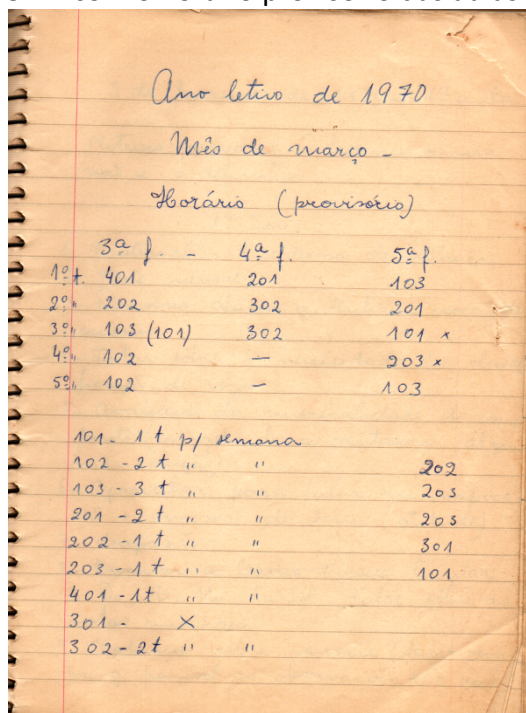 Ano letivo de 1970
Mês de março -
Horário (provisório)
3ª f. - 4ª f. 5ª f.
1º t. 401 201 103
2º " 202 302 201
3º " 103 (101) 302 101 x
4º " 102 — 203 x
5º " 102 — 103
101 - 1 t p/ semana
102 - 2 t " " 202
103 - 3 t " " 203
201 - 2 t " " 203
202 - 1 t " " 301
203 - 1 t " " 101
401 - 1t " "
301 - X
302 - 2t " "